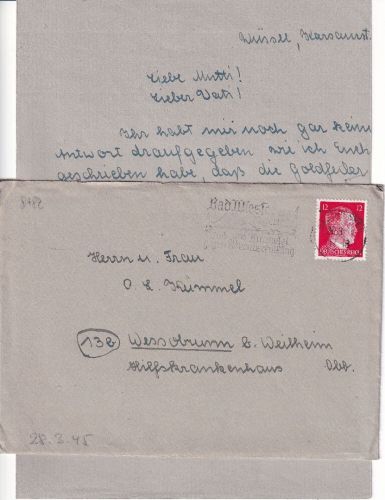 Liebe Mutti!
Lieber Vati!
Ihr habt mir noch gar kein
Antwort draufgegeben wie ich Euch
geschrieben habe, daß die Goldfeiler
8482
Bad
12 12
DEUTSCHES REICH
Herrn u. Frau
O. L. Kümmel
13b Wessobrunn b. Weilheim
Hilfskrankenhaus Obb.
28.3.45